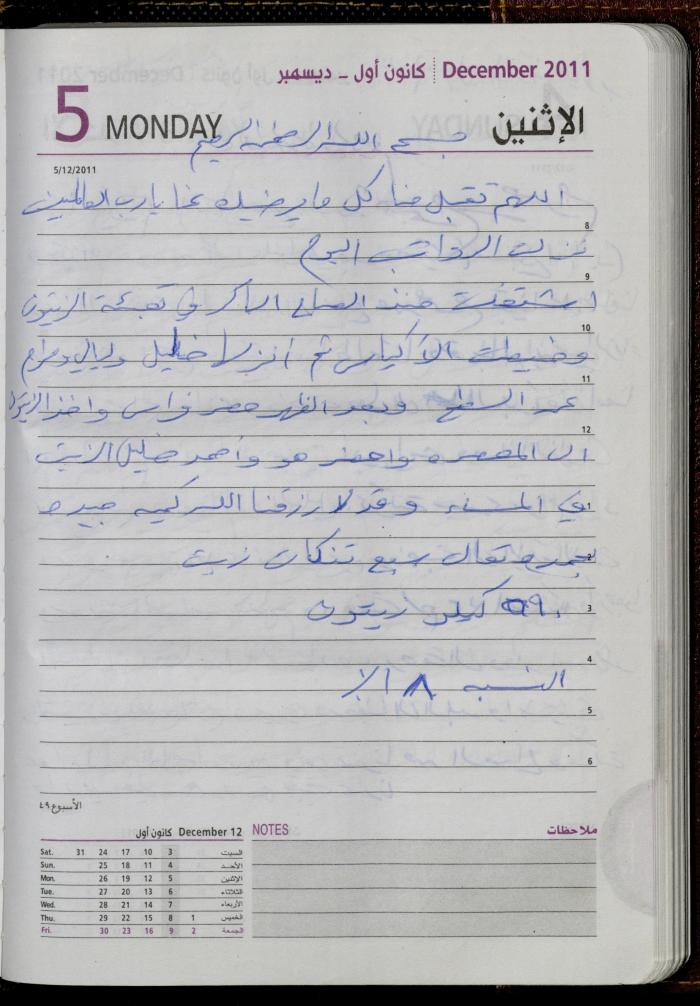 December 2011 | كانون أول - ديسمبر
5 MONDAY الإثنين
بسم الله الرحمن الرحيم
5/12/2011
اللهم تقبل منا كل ما يرضيك عنا يا رب العالمين
8
نزلت الرواتب اليوم
9
اشتغلت منذ الصباح الباكر في تعبئة الزيتون
10
وخيطت الأكياس ثم أنزلها خليل وليالي ومرام
11
عن السطح وبعد الظهر حضر فراس واخذ الزيتون
12
الى المعصره واحضر هو واحمد خليل الزيت
1
في المساء وقد رزقنا الله كميه جيده
2
بحمده تعالى سبع تنكات زيت
3
٥٩٠ كيلو زيتون
4
النسبه ٨ الا
5
6
الأسبوع ٤٩
December 12 كانون أول
Sat. 31 24 17 10 3 السبت
Sun. 25 18 11 4 الأحد
Mon. 26 19 12 5 الإثنين
Tue. 27 20 13 6 الثلاثاء
Wed. 28 21 14 7 الأربعاء
Thu. 29 22 15 8 1 الخميس
Fri. 30 23 16 9 2 الجمعة
NOTES ملاحظات